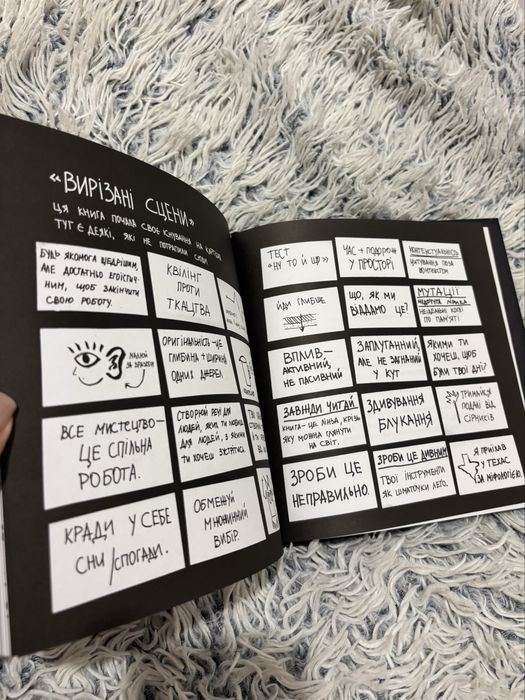 «ВИРІЗАНІ СЦЕНИ»
ЦЯ КНИГА ПОЧАЛА СВОЄ ІСНУВАННЯ НА КАРТКАХ.
ТУТ Є ДЕЯКІ, ЯКІ НЕ ПОТРАПИЛИ СЮДИ.
БУДЬ ЯКОМОГА ЩЕДРІШИМ,
АЛЕ ДОСТАТНЬО ЕГОЇСТИЧ-
НИМ, ЩОБ ЗАКІНЧИТИ
СВОЮ РОБОТУ.
КВІЛІНГ
ПРОТИ
ТКАЦТВА
МАЛЮЙ
ЗА ЗРАЗКОМ
ОРИГІНАЛЬНІСТЬ – ЦЕ
ГЛИБИНА + ШИРИНА
ОДНИХ ДЖЕРЕЛ.
ВСЕ МИСТЕЦТВО –
ЦЕ СПІЛЬНА
РОБОТА.
СТВОРЮЙ РЕЧІ ДЛЯ
ЛЮДЕЙ, ЯКИМИ ТИ
ДЛЯ ЛЮДЕЙ, З ЯКИМИ
ТИ ХОЧЕШ ЗУСТРІТИСЯ.
КРАДИ У СЕБЕ
СНИ/СПОГАДИ.
ОБМЕЖУЙ
МНОЖИННИЙ
ВИБІР.
ТЕСТ
«НУ ТО Й ЩО»
ЧАС + ПОДОРОЖ
У ПРОСТОРІ
КОНТЕКСТУАЛЬНІСТЬ
ЦИТУВАННЯ ПОЗА
КОНТЕКСТОМ
ЙДИ ГЛИБШЕ
ЩО, ЯК МИ
ВІДДАМО ЦЕ?
МУТАЦІЇ
НЕДОЧУТА ЛІРИКА
НЕІДЕАЛЬНІ КОПІЇ
ПО ПАМ'ЯТІ
ВПЛИВ –
АКТИВНИЙ,
НЕ ПАСИВНИЙ
ЗАПЛУТАННИЙ,
АЛЕ НЕ ЗАГНАНИЙ
У КУТ
ЯКИМИ ТИ
ХОЧЕШ, ЩОБ
БУЛИ ТВОЇ ДНІ?
ЗАВЖДИ ЧИТАЙ
КНИГА – ЦЕ ЛІНЗА, КРІЗЬ
ЯКУ МОЖНА ГЛЯНУТИ
НА СВІТ.
ЗДИВУВАННЯ
БЛУКАННЯ
ТРИМАЙСЯ
ПОДАЛІ ВІД
СІРНИКІВ
ЗРОБИ ЦЕ
НЕПРАВИЛЬНО.
ЗРОБИ ЦЕ ДИВНИМ
ТВОЇ ІНСТРУМЕНТИ
ЯК ШМАТОЧКИ ЛЕГО.
Я ПРИЇХАВ
У ТЕХАС
ЗА МІФОЛОГІЄЮ.